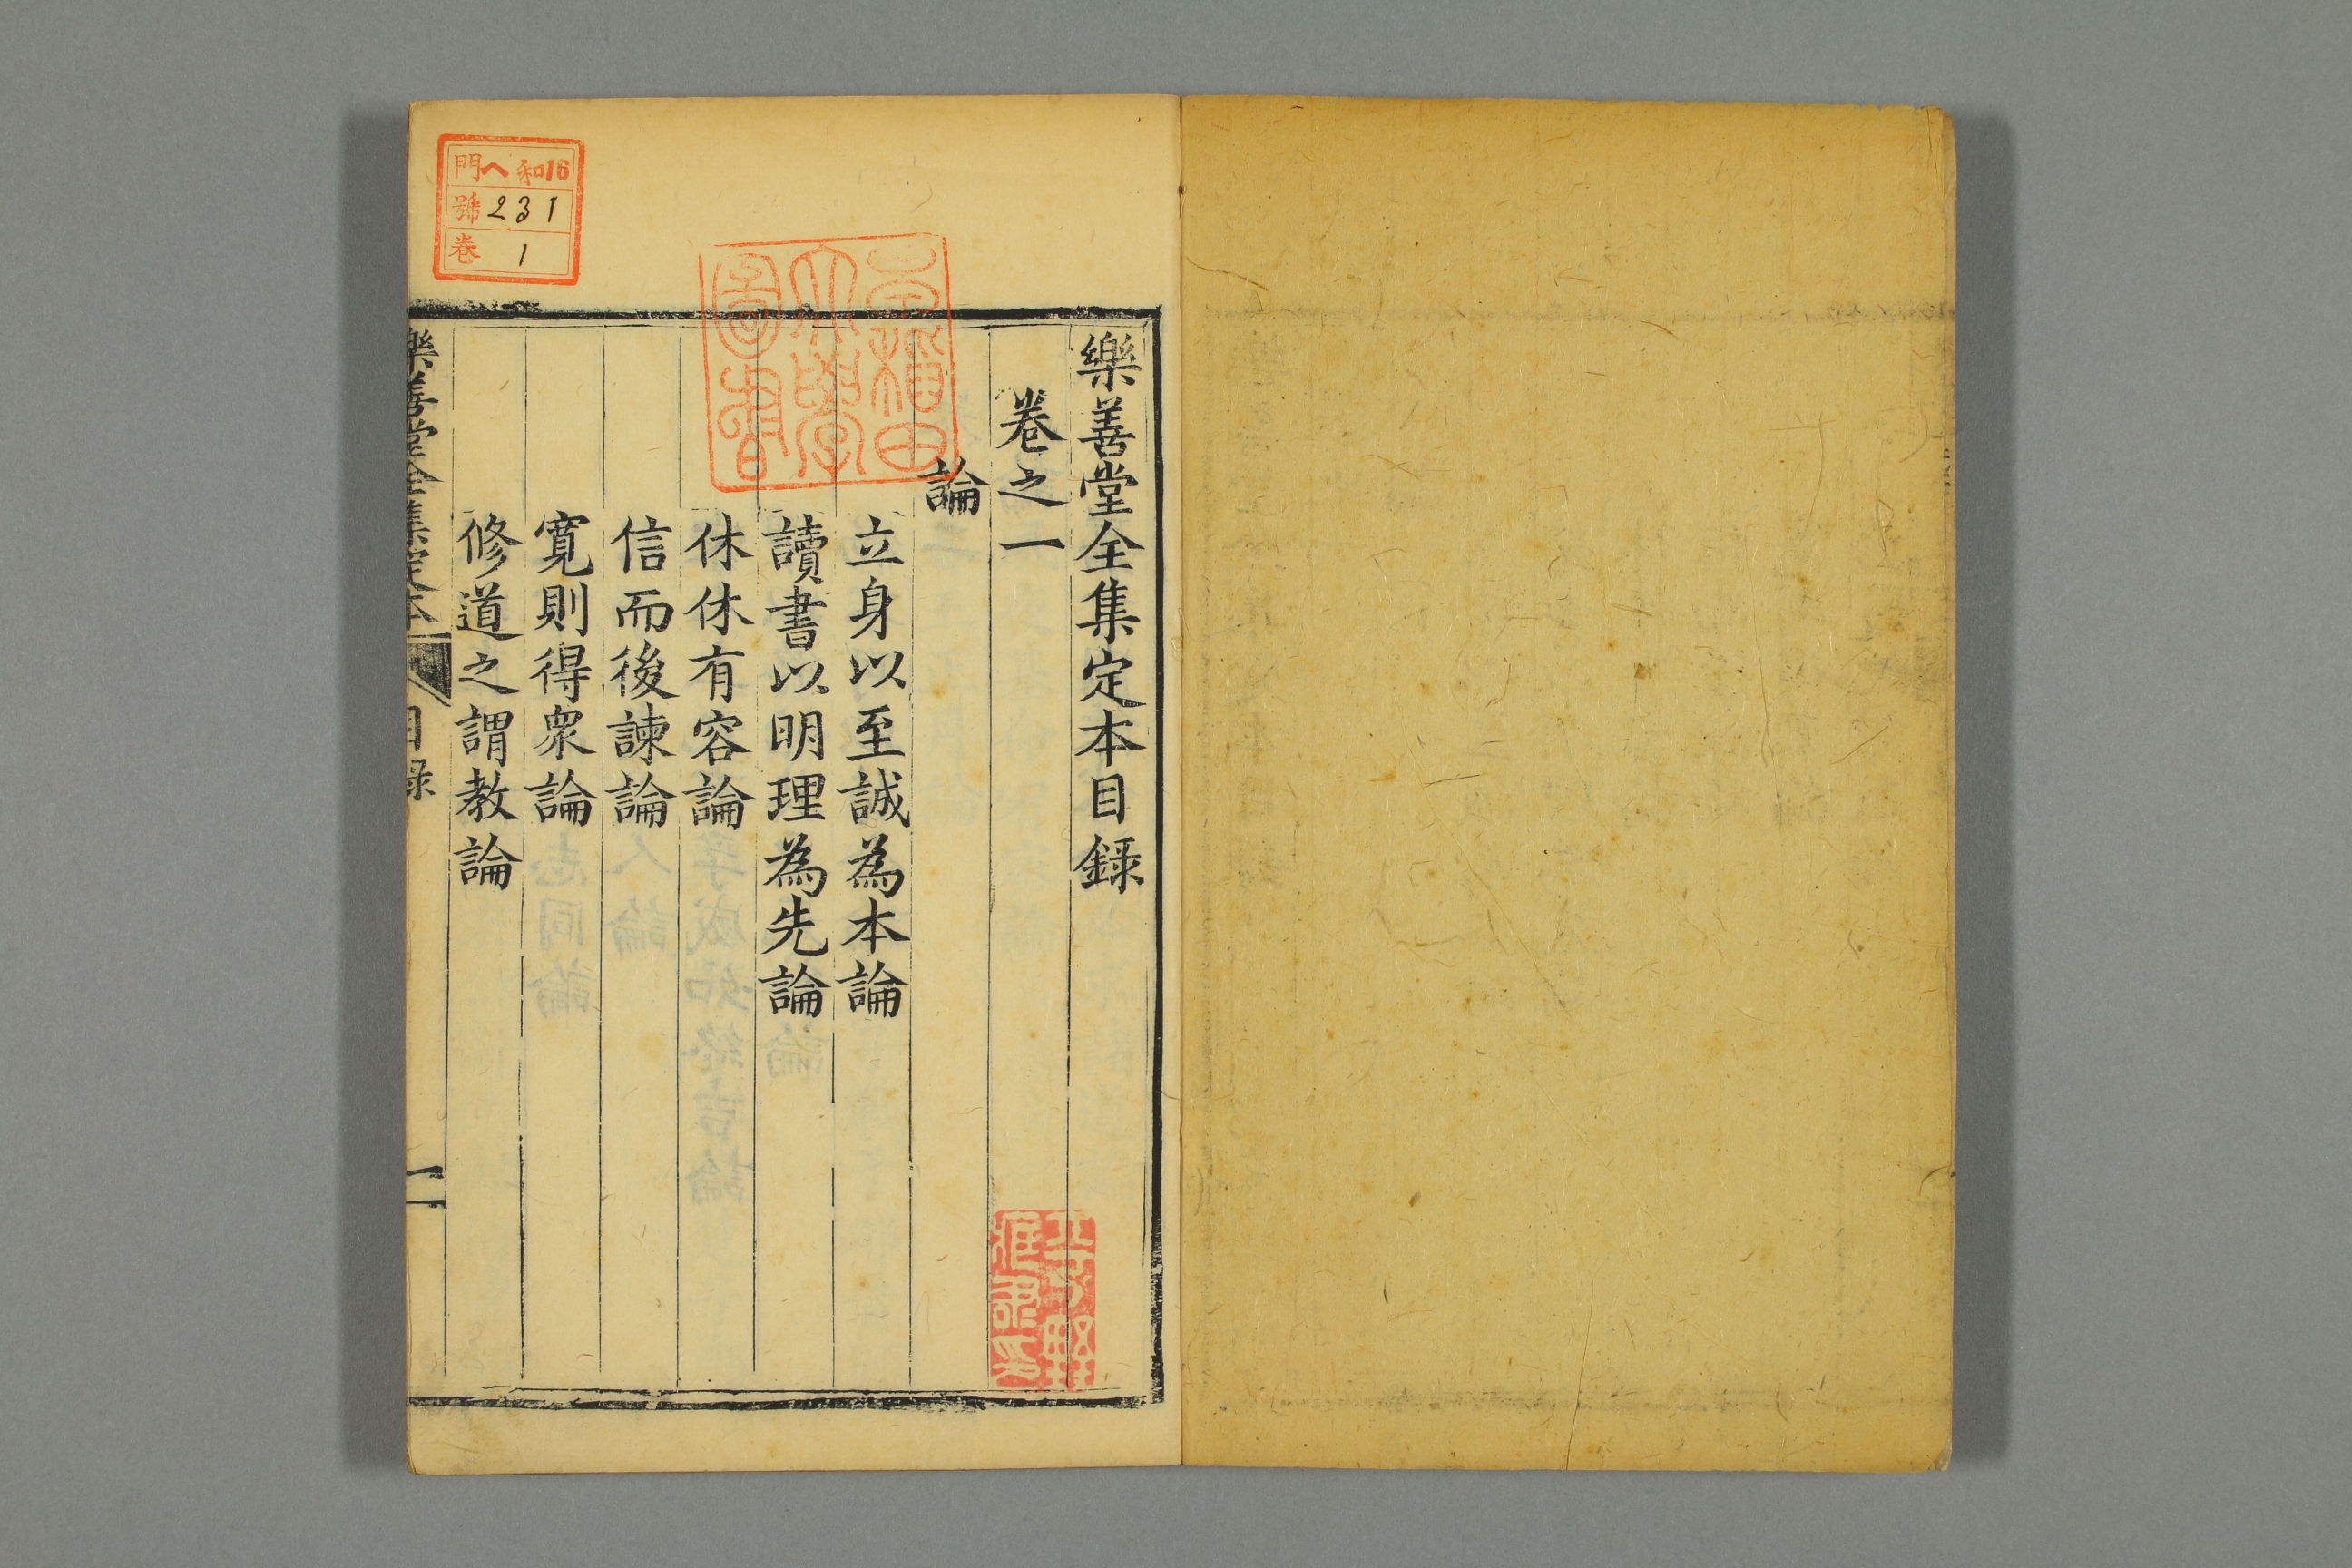 樂善堂全集定本目錄
卷之一
論
立身以至誠為本論
讀書以明理為先論
休休有容論
信而後諫論
寬則得衆論
修道之謂教論
樂善堂全集定本
目錄
一
門ヘ和16
號231
卷1
早稲田
大學
圖書